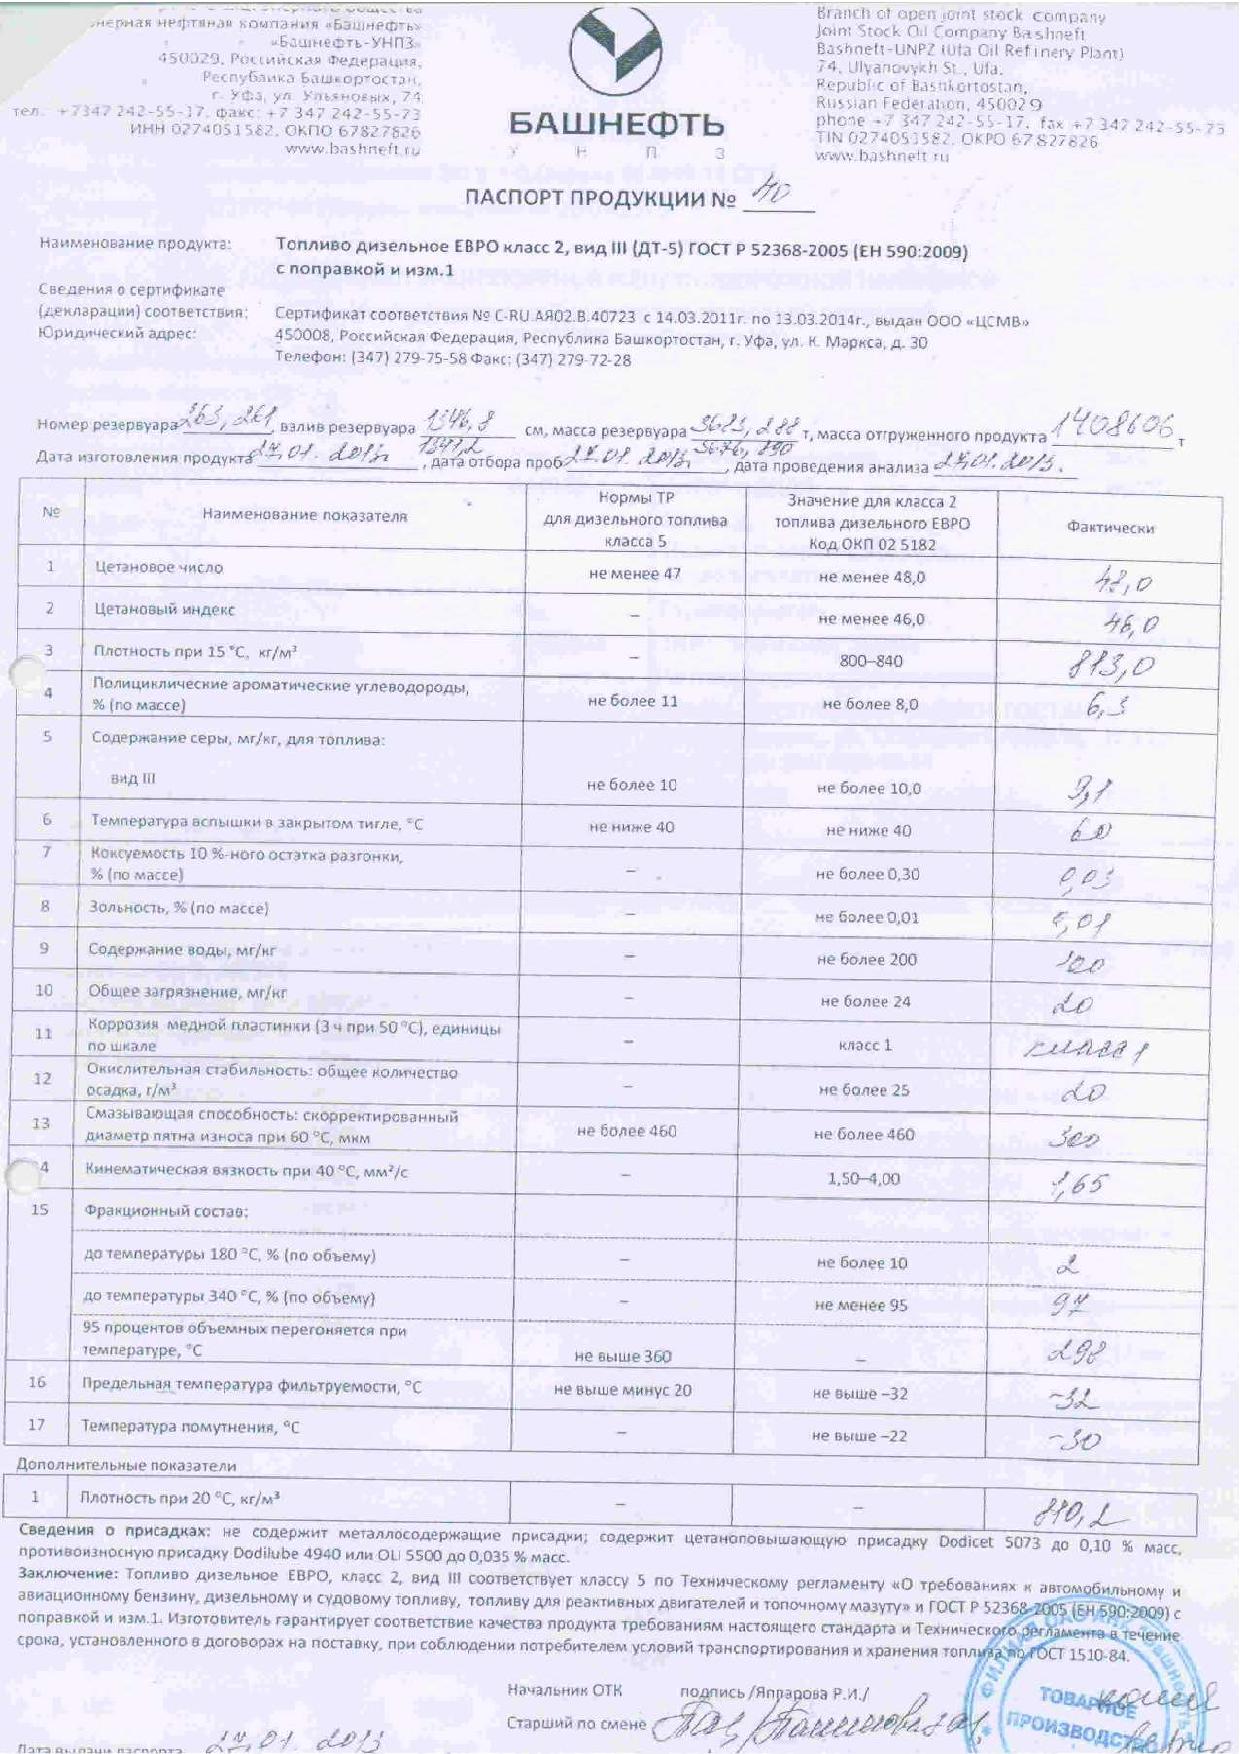 нерная нефтяная компания «Башнефть»
«Башнефть-УНПЗ»
450029, Российская Федерация,
Республика Башкортостан,
г. Уфа, ул. Ульяновых, 74
тел. +7347 242-55-17, факс: +7 347 242-55-73
ИНН 0274051582, ОКПО 67827826
www.bashneft.ru
БАШНЕФТЬ
У Н П З
Branch of open joint stock company
Joint Stock Oil Company Bashneft
Bashneft-UNPZ (Ufa Oil Refinery Plant)
74, Ulyanovykh St., Ufa,
Republic of Bashkortostan,
Russian Federation, 450029
phone +7 347 242-55-17, fax +7 347 242-55-73
TIN 0274051582, OKPO 67827826
www.bashneft.ru
ПАСПОРТ ПРОДУКЦИИ № 40
Наименование продукта: Топливо дизельное ЕВРО класс 2, вид III (ДТ-5) ГОСТ Р 52368-2005 (ЕН 590:2009)
с поправкой и изм.1
Сведения о сертификате
(декларации) соответствия: Сертификат соответствия № C-RU.АЯ02.В.40723 с 14.03.2011г. по 13.03.2014г., выдан ООО «ЦСМВ»
Юридический адрес: 450008, Российская Федерация, Республика Башкортостан, г. Уфа, ул. К. Маркса, д. 30
Телефон: (347) 279-75-58 Факс: (347) 279-72-28
Номер резервуара 263, 261, взлив резервуара 1346,8 см, масса резервуара 3683,288 т, масса отгруженного продукта 1408606 т
1341,2 3676,890
Дата изготовления продукта 27.01.2013, дата отбора проб 27.01.2013, дата проведения анализа 27.01.2013.
№ Наименование показателя Нормы ТР для дизельного топлива класса 5 Значение для класса 2 топлива дизельного ЕВРО Код ОКП 02 5182 Фактически
1 Цетановое число не менее 47 не менее 48,0 48,0
2 Цетановый индекс – не менее 46,0 46,0
3 Плотность при 15 °С, кг/м³ – 800–840 813,0
4 Полициклические ароматические углеводороды, % (по массе) не более 11 не более 8,0 6,3
5 Содержание серы, мг/кг, для топлива:
вид III не более 10 не более 10,0 9,1
6 Температура вспышки в закрытом тигле, °С не ниже 40 не ниже 40 60
7 Коксуемость 10 %-ного остатка разгонки, % (по массе) – не более 0,30 0,03
8 Зольность, % (по массе) – не более 0,01 0,01
9 Содержание воды, мг/кг – не более 200
10 Общее загрязнение, мг/кг – не более 24 20
11 Коррозия медной пластинки (3 ч при 50 °С), единицы по шкале – класс 1 класс 1
12 Окислительная стабильность: общее количество осадка, г/м³ – не более 25 20
13 Смазывающая способность: скорректированный диаметр пятна износа при 60 °С, мкм не более 460 не более 460 300
4 Кинематическая вязкость при 40 °С, мм²/с – 1,50–4,00 1,65
15 Фракционный состав:
до температуры 180 °С, % (по объему) – не более 10 2
до температуры 340 °С, % (по объему) – не менее 95 97
95 процентов объемных перегоняется при температуре, °С не выше 360 – 298
16 Предельная температура фильтруемости, °С не выше минус 20 не выше –32 -32
17 Температура помутнения, °С – не выше –22 -30
Дополнительные показатели
1 Плотность при 20 °С, кг/м³ – – 810,2
Сведения о присадках: не содержит металлосодержащие присадки; содержит цетаноповышающую присадку Dodicet 5073 до 0,10 % масс,
противоизносную присадку Dodilube 4940 или OLI 5500 до 0,035 % масс.
Заключение: Топливо дизельное ЕВРО, класс 2, вид III соответствует классу 5 по Техническому регламенту «О требованиях к автомобильному и
авиационному бензину, дизельному и судовому топливу, топливу для реактивных двигателей и топочному мазуту» и ГОСТ Р 52368-2005 (ЕН 590:2009) с
поправкой и изм.1. Изготовитель гарантирует соответствие качества продукта требованиям настоящего стандарта и Технического регламента в течение
срока, установленного в договорах на поставку, при соблюдении потребителем условий транспортирования и хранения топлива по ГОСТ 1510-84.
Начальник ОТК подпись /Яппарова Р.И./
Старший по смене
Дата выдачи паспорта 27.01.2013
ТОВАРНОЕ
ПРОИЗВОДСТВО
копия
верна